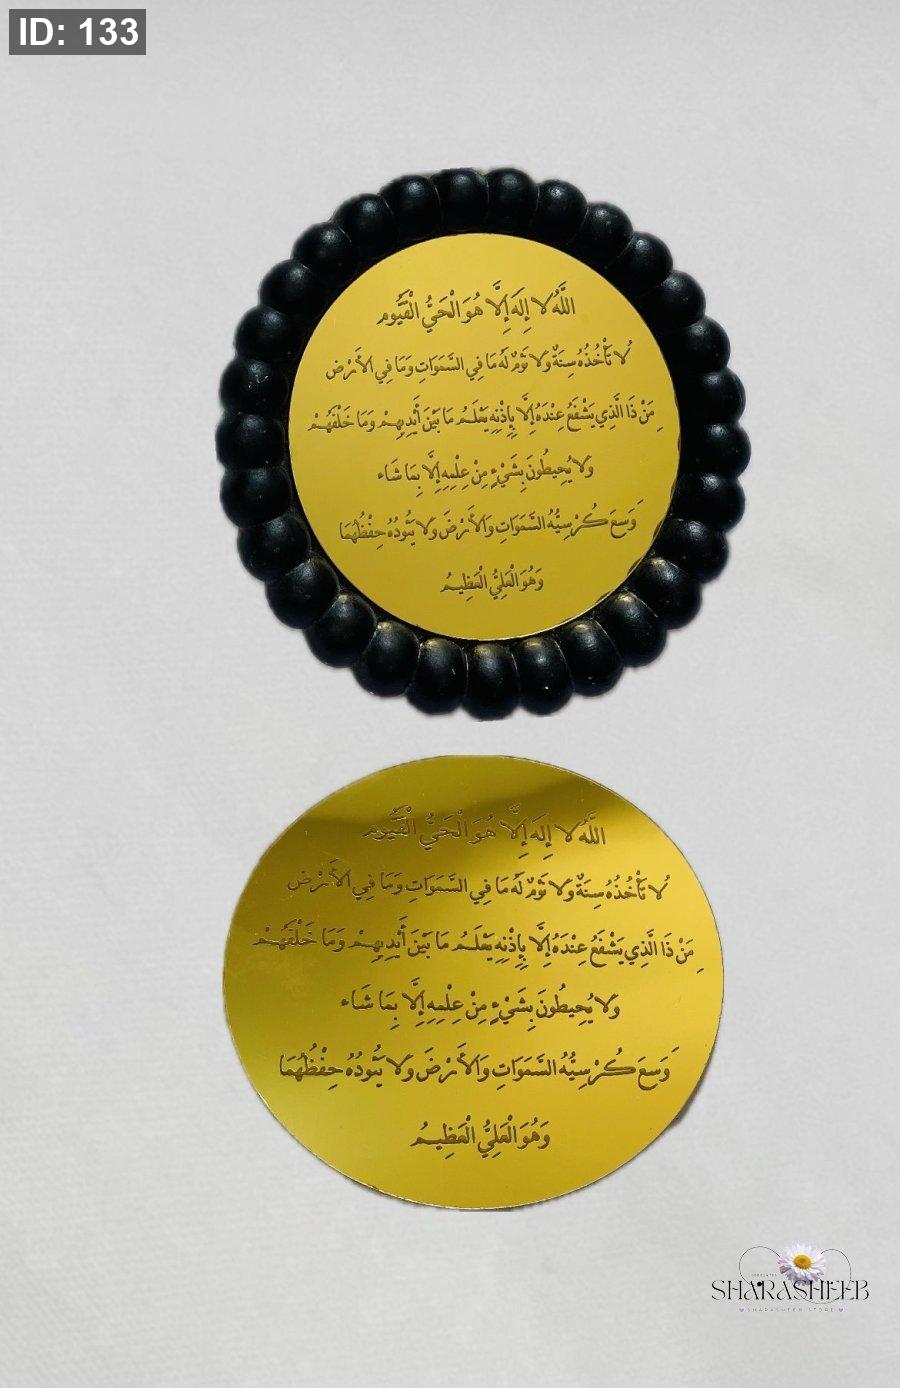 ID: 133
اللَّهُ لا إِلَهَ إِلَّا هُوَ الْحَيُّ الْقَيُّوم
لا تَأْخُذُهُ سِنَةٌ وَلا نَوْمٌ لَهُ مَا فِي السَّمَوَاتِ وَمَا فِي الأَرْض
مَنْ ذَا الَّذِي يَشْفَعُ عِنْدَهُ إِلَّا بِإِذْنِهِ يَعْلَمُ مَا بَيْنَ أَيْدِيهِمْ وَمَا خَلْفَهُمْ
وَلا يُحِيطُونَ بِشَيْءٍ مِنْ عِلْمِهِ إِلَّا بِمَا شَاء
وَسِعَ كُرْسِيُّهُ السَّمَوَاتِ وَالأَرْضَ وَلا يَئُودُهُ حِفْظُهُمَا
وَهُوَ الْعَلِيُّ الْعَظِيمُ
اللَّهُ لا إِلَهَ إِلَّا هُوَ الْحَيُّ الْقَيُّوم
لا تَأْخُذُهُ سِنَةٌ وَلا نَوْمٌ لَهُ مَا فِي السَّمَوَاتِ وَمَا فِي الأَرْض
مَنْ ذَا الَّذِي يَشْفَعُ عِنْدَهُ إِلَّا بِإِذْنِهِ يَعْلَمُ مَا بَيْنَ أَيْدِيهِمْ وَمَا خَلْفَهُمْ
وَلا يُحِيطُونَ بِشَيْءٍ مِنْ عِلْمِهِ إِلَّا بِمَا شَاء
وَسِعَ كُرْسِيُّهُ السَّمَوَاتِ وَالأَرْضَ وَلا يَئُودُهُ حِفْظُهُمَا
وَهُوَ الْعَلِيُّ الْعَظِيمُ
SHARASHEEB
SHARASHEEB STORE